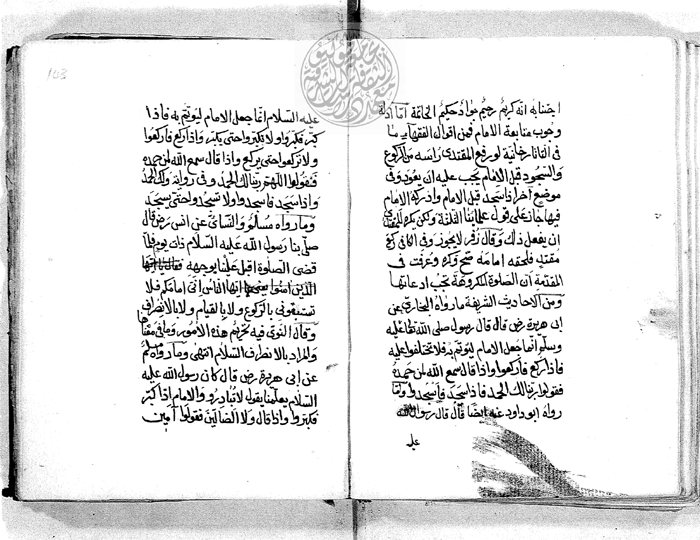 اجتنابه انه كريم رحيم جواد حكيم الخاتمة اما ادلة
وجوب متابعة الامام فمن اقوال الفقهاء ما
فى التاتارخانية لو رفع المقتدى راسه من الركوع
والسجود قبل الامام يجب عليه ان يعود وفى
موضع آخر اذا سجد قبل الامام وادركه الامام
فيها جاز على قول علمائنا الثلثة ولكن يكره للمقتدى
ان يفعل ذلك وقال زفر لا يجوز وفى الكافى ركع
مقتد فلحقه امامه صح وكره وعرفت فى
المقدمة ان الصلوة المكروهة تجب اعادتها
ومن الاحاديث الشريفة ما رواه البخارى عن
ابى هريرة رض قال قال رسول صلى الله تعالى عليه
وسلم انما جعل الامام ليؤتم به فلا تختلفوا عليه
فاذا ركع فاركعوا واذا قال سمع الله لمن حمده
فقولوا ربنا لك الحمد فاذا سجد فاسجدوا وما
رواه ابو داود عنه ايضا قال قال رسول الله
عليه
103
عليه السلام انما جعل الامام ليؤتم به فاذا
كبر فكبروا ولا تكبروا حتى يكبر واذا ركع فاركعوا
ولا تركعوا حتى يركع واذا قال سمع الله لمن حمده
فقولوا اللهم ربنا لك الحمد وفى رواية ولك الحمد
واذا سجد فاسجدوا ولا تسجدوا حتى يسجد
وما رواه مسلم والنسائى عن انس رض قال
صلى بنا رسول الله عليه السلام ذات يوم فلما
قضى الصلوة اقبل علينا بوجهه فقال
ايها الناس انى امامكم فلا
تسبقونى بالركوع ولا بالقيام ولا بالانصراف
وقال النووى فيه تحريم هذه الامور وما فى معناها
والمراد بالانصراف السلام انتهى وما رواه مسلم
عن ابى هريرة رض قال كان رسول الله عليه
السلام يعلمنا يقول لا تبادروا الامام اذا كبر
فكبروا واذا قال ولا الضالين فقولوا آمين